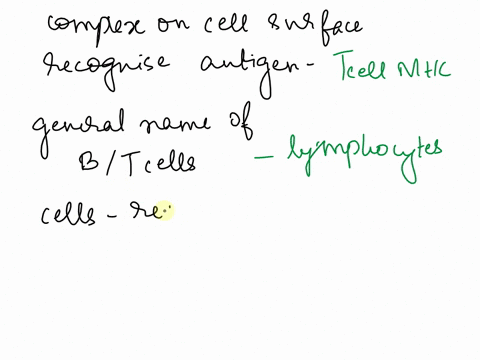 complex on cell surface
recognise antigen - Tcell MHC
general name of
B/T cells - lymphocytes
cells - re